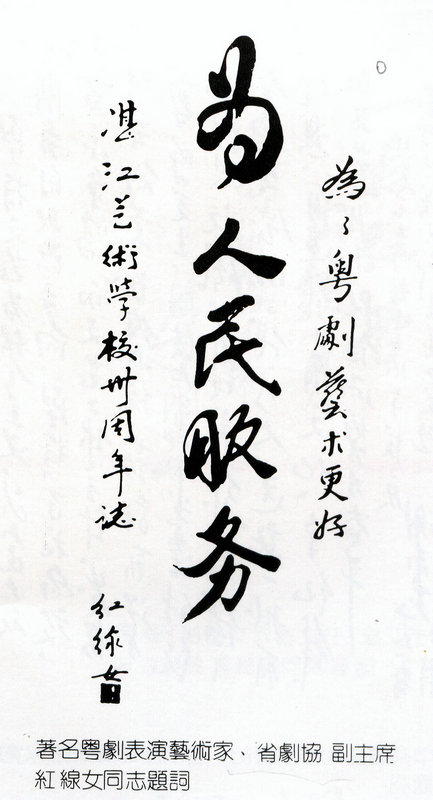 為了粤劇藝术更好
为人民服务
湛江艺術學校卅周年誌
红線女
著名粤劇表演藝術家、省劇協 副主席
紅線女同志題詞